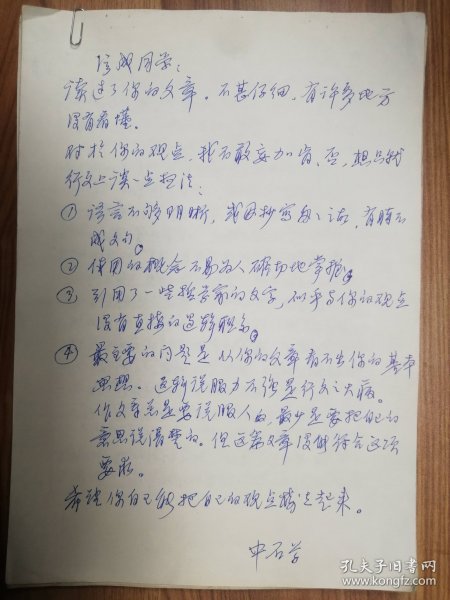 同学：
读过了你的文章。不甚仔细，有许多地方
没有看懂。
对于你的观点，我不敢妄加肯、否，想只就
行文上谈一点想法：
① 语言不够明晰，或因抄写之误，有时不
成文句。
② 使用的概念不易为人确切地掌握。
③ 引用了一些哲学家的文字，似乎与你的观点
没有直接的逻辑联系。
④ 最主要的问题是从你的文章看不出你的基本
思想。逻辑说服力不强是行文之大病。
作文章总是要说服人的，最少是要把自己的
意思说清楚的。但这篇文章没能符合这项
要求。
希望你自己能把自己的观点拣选起来。
中石
孔夫子旧书网
www.kongfz.com